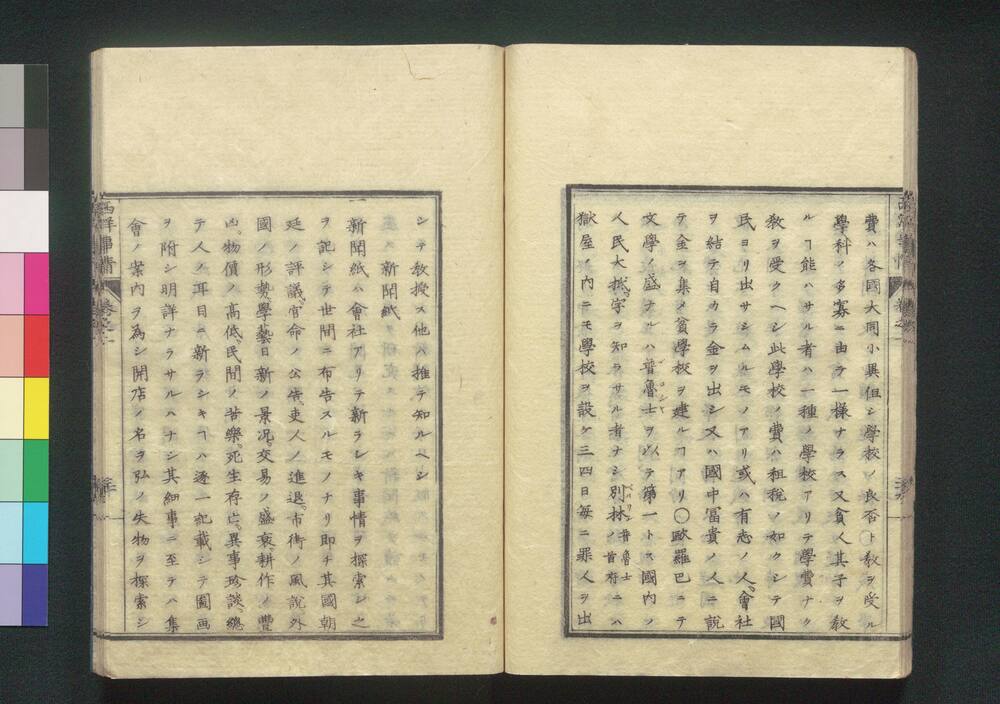 費ハ各國大同小異但シ學校ノ良否ト教ヲ受ル
學科ノ多寡ニ由テ一樣ナラス又貧人其子ヲ教
ルヿ能ハサル者ハ一種ノ學校アリテ學費ナク
教ヲ受クヘシ此學校ノ費ハ租税ノ如クシテ國
民ヨリ出サシムルモノアリ或ハ有志ノ人會社
ヲ結テ自カラ金ヲ出シ又ハ國中冨貴ノ人ニ説
テ金ヲ集メ貧學校ヲ建ルヿアリ○歐羅巴ニテ
文學ノ盛ナルハ普魯士ヲ以テ第一トス國内ノ
人民大抵字ヲ知ラサル者ナシ別林普魯士ノ首府ニハ
獄屋ノ内ニモ學校ヲ設ケ三四日毎ニ罪人ヲ出
シテ教授ス他ハ推テ知ルヘシ
新聞紙
一新聞紙ハ會社アリテ新ラシキ事情ヲ探索シ之
ヲ記シテ世間ニ布告スルモノナリ即チ其國朝
廷ノ評議官命ノ公告吏人ノ進退市街ノ風說外
國ノ形勢學藝日新ノ景況交易ノ盛衰耕作ノ豐
凶物價ノ高低民間ノ苦樂死生存亡異事珍談總
テ人ノ耳目ニ新ラシキヿハ逐一記載シテ圖画
ヲ附シ明詳ナラサルハナシ其細事ニ至テハ集
會ノ案内ヲ為シ開店ノ名ヲ弘メ失物ヲ探索シ
西洋事情